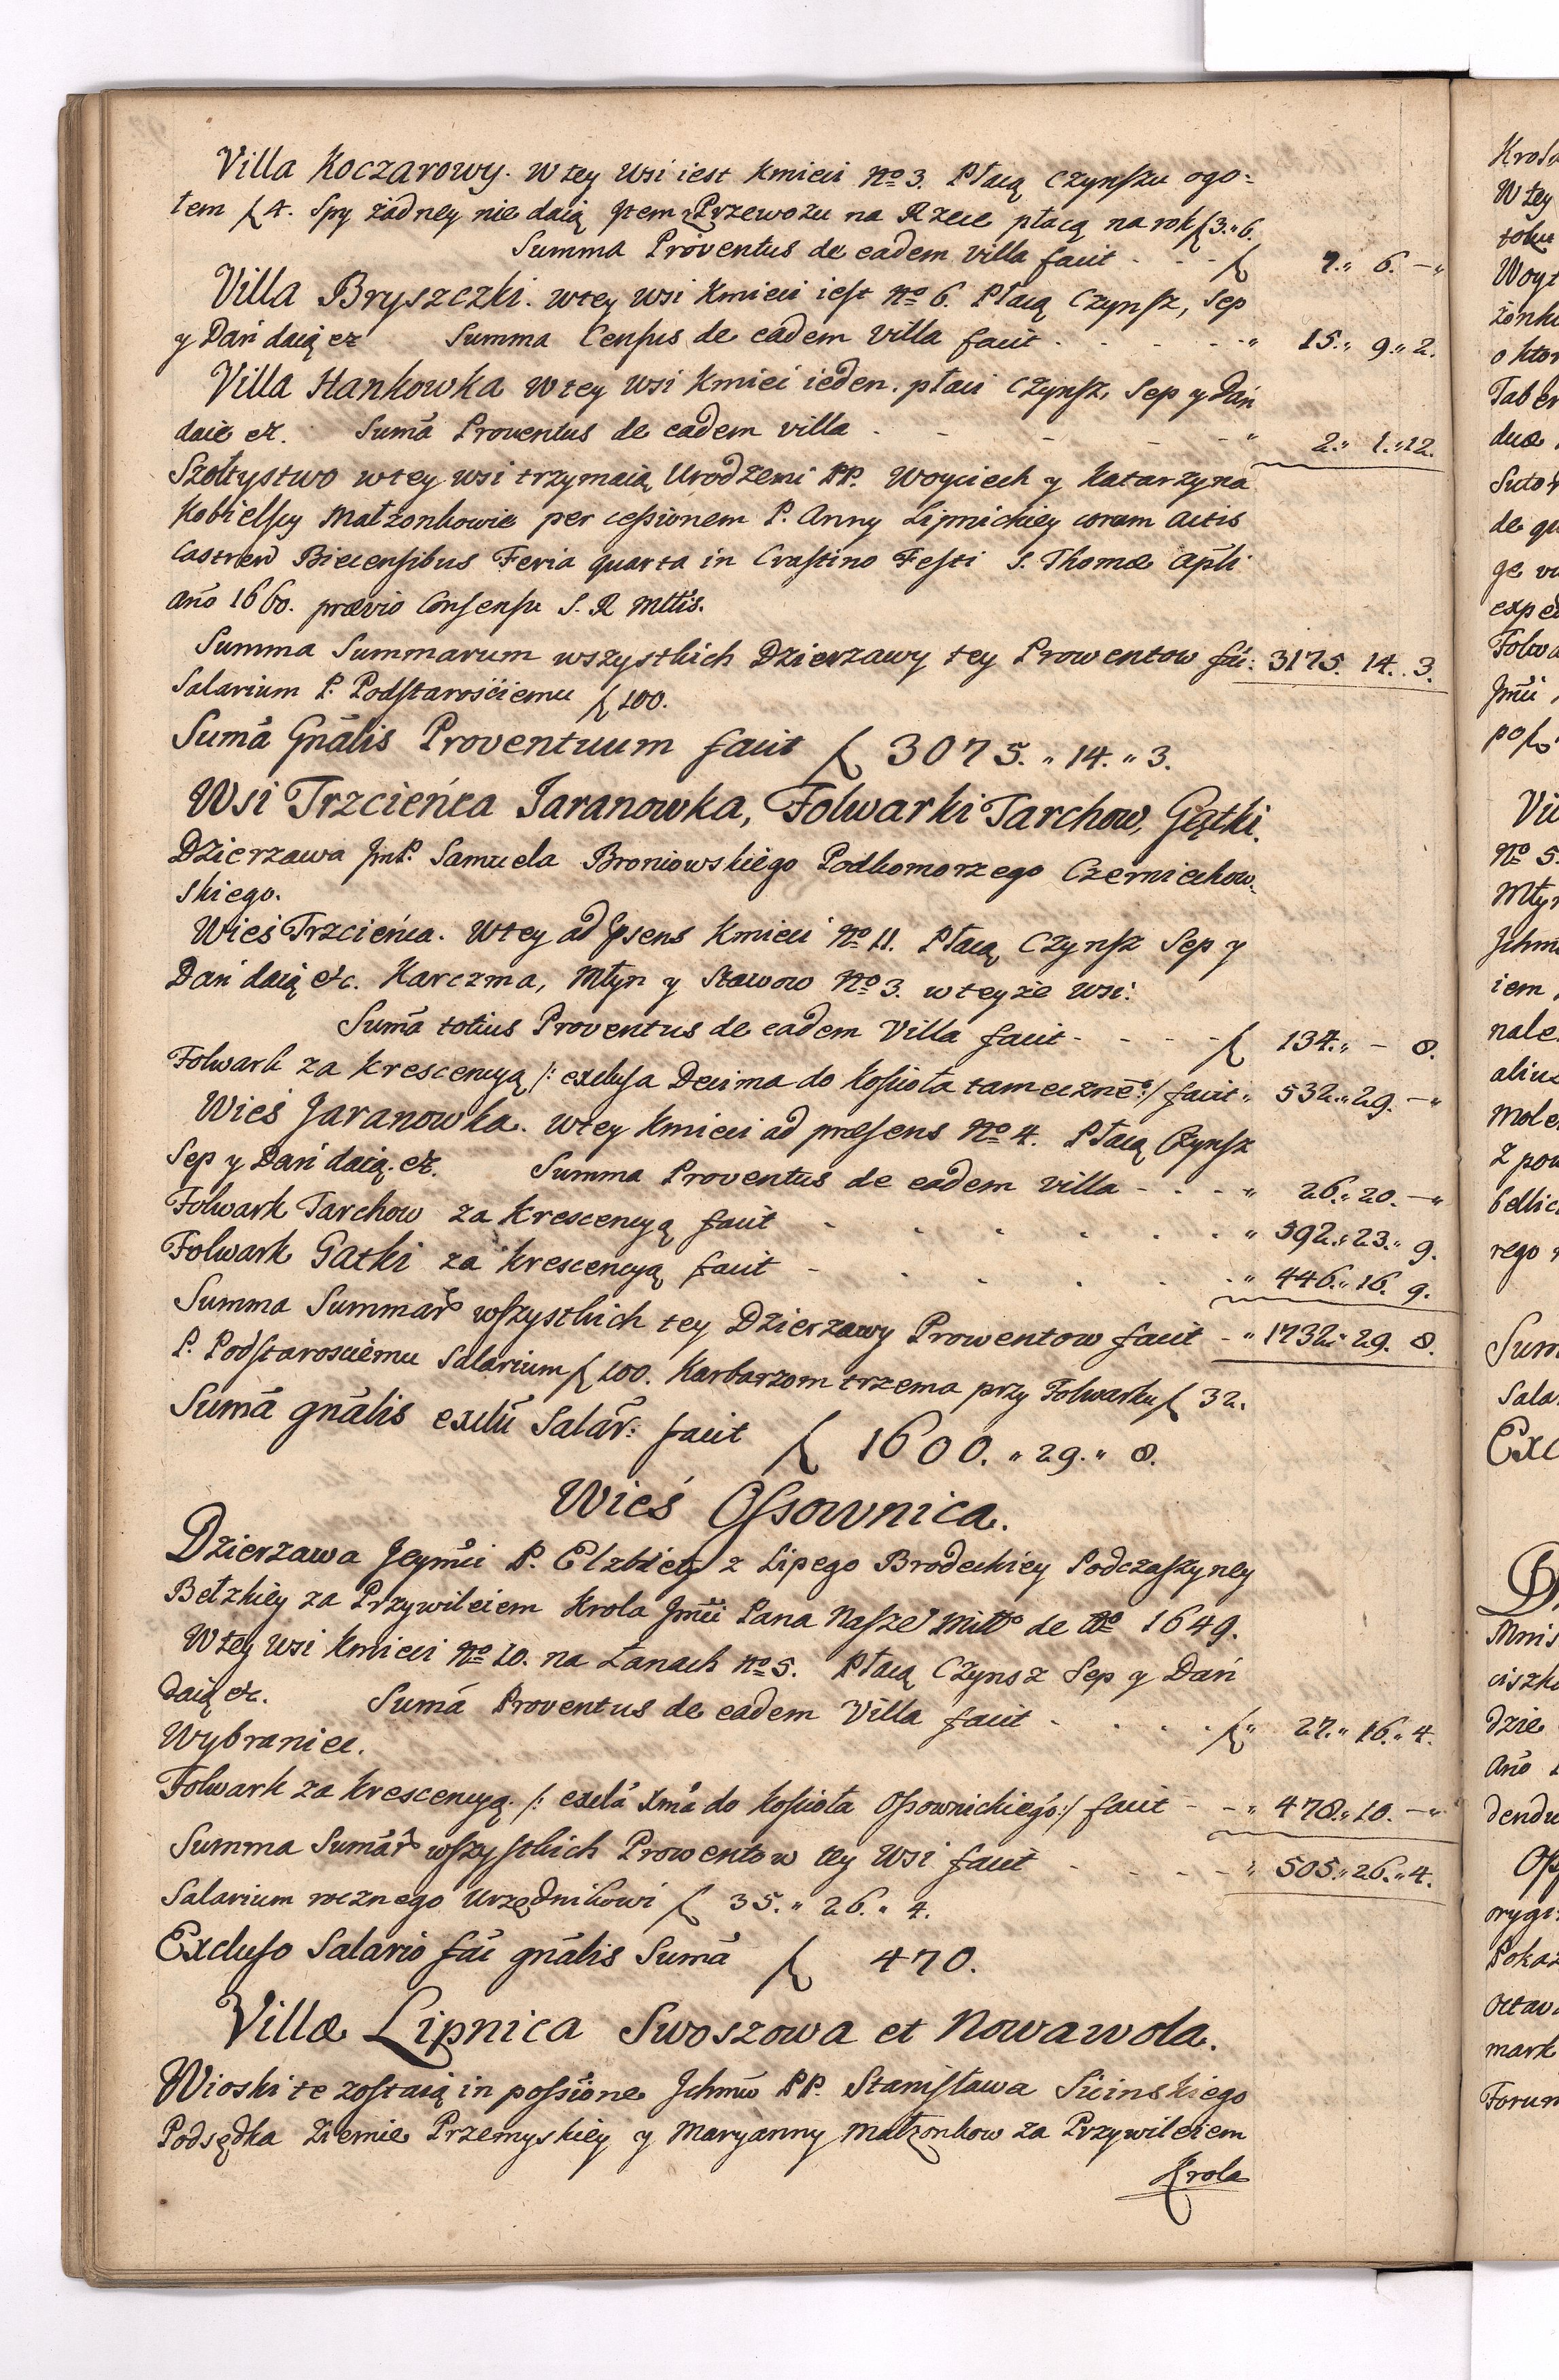 Villa Koczarowy. W tey Wsi iest Kmieci No 3. Płacą Czynszu ogo=
łem f 4. Spy żadney nie daią Item z Przewozu na Rzece płacą na rok f 3. „ 6.
Summa Proventus de eadem villa facit - - - f 7. „ 6. — „
Villa Bryszczki. w tey wsi Kmieci iest No 6. Płacą Czynsz, Sep
y Dań daią etc Summa Census de eadem Villa facit . . . . . „ 15. „ 9. „ 2.
Villa Hankowka w tey wsi Kmieć ieden. płaci Czynsz, Sep y Dań
daie etc. Suma Proventus de eadem villa . - - - - „ 2. „ 1. „ 12.
Szołtystwo w tey wsi trzymaią Urodzeni PP. Woyciech y Katarzyna
Kobielscy Małżonkowie per cessionem P. Anny Lipnickiey coram Actis
Castren Biecensibus Feria quarta in Crastino Festi S. Thomæ Apli
Año 1660. prævio Consensu S. R Mttis.
Summa Summarum wszystkich Dzierzawy tey Prowentow fa: 3175. 14. . 3.
Salarium P. Podstarościemu f 100.
Sumã Gnãlis Proventuum facit f 3075. „ 14. „ 3.
Wsi Trzcieńca Jaranowka, Folwarki Tarchow, Gątki.
Dzierzawa JmP. Samuela Broniowskiego Podkomorzego Czerniechow-
skiego.
Wieś Trzcieńca. W tey ad psens Kmieci No 11. Płacą Czynsz Sep y
Dań daią etc. Karczma, Młyn y Stawow No 3. w teyże wsi.
Sumã totius Proventus de eadem Villa facit - - - - f 134. „ — 8.
Folwark za krescencyą /: exclusa Decima do Kościoła tameczneo :/ facit „ 532. „ 29. — „
Wieś Jaranowka. w tey Kmieci ad præsens No 4. Płacą Czynsz
Sep y Dań daią. etc. Summa Proventus de eadem villa - . - „ 26. „ 20. — „
Folwark Tarchow za krescencyą facit - . . . . . „ 592. „ 23. „ 9.
Folwark Gatki za krescencyą facit - . - . . . „ 446. „ 16. 9.
Summa Summar wszystkich tey Dzierzawy Prowentow facit - „ 1732. „ 29. 8.
P. Podstarosciemu Salarium f 100. Karbarzom trzema przy Folwarku f 32.
Sumã gnãlis exclu Salar: facit f 1600. „ 29. „ 8.
Wieś Ossownica.
Dzierzawa Jeymci P. Elzbiety z Lipego Brodeckiey Podczaszyney
Bełzkiey za Przywileiem Krola Jmci Pana Naszeo Mitto de Ao 1649.
W tey wsi Kmieci No 10. na Łanach No 5. Płacą Czynsz Sep y Dań
daią etc. Sumã Proventus de eadem Villa facit . . . . f „ 27. „ 16. „ 4.
Wybraniec.
Folwark za krescencyą. /: exclã Xmã do kościoła Ossownickiego :/ facit - - „ 478. „ 10. — „
Summa Sumãr wszystkich Prowentow tey Wsi facit . - - - „ 505. „ 26. „ 4.
Salarium rocznego Urzędnikowi f 35. „ 26. „ 4.
Excluso Salario fãc gnãlis Sumã f 470.
Villæ Lipnica Swoszowa et Nowawola.
Wioski te zostaią in possione Jchmw PP. Stanisława Sicinskiego
Podsędka Ziemie Przemyskiey y Maryanny Małzonkow za Przywileiem
Krola